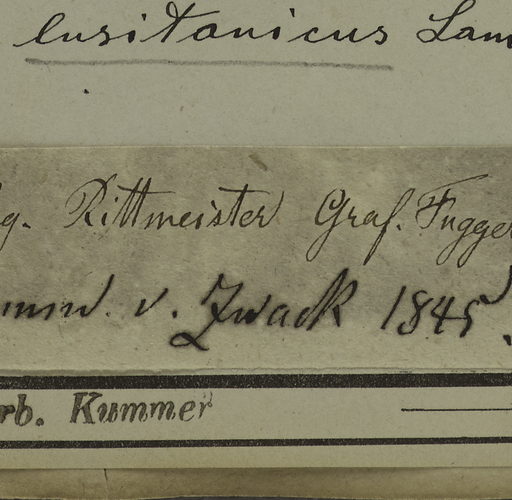 lusitanicus Lam
g. Rittmeister Graf. Fugger
v. Zwack 1845.
rb. Kummer